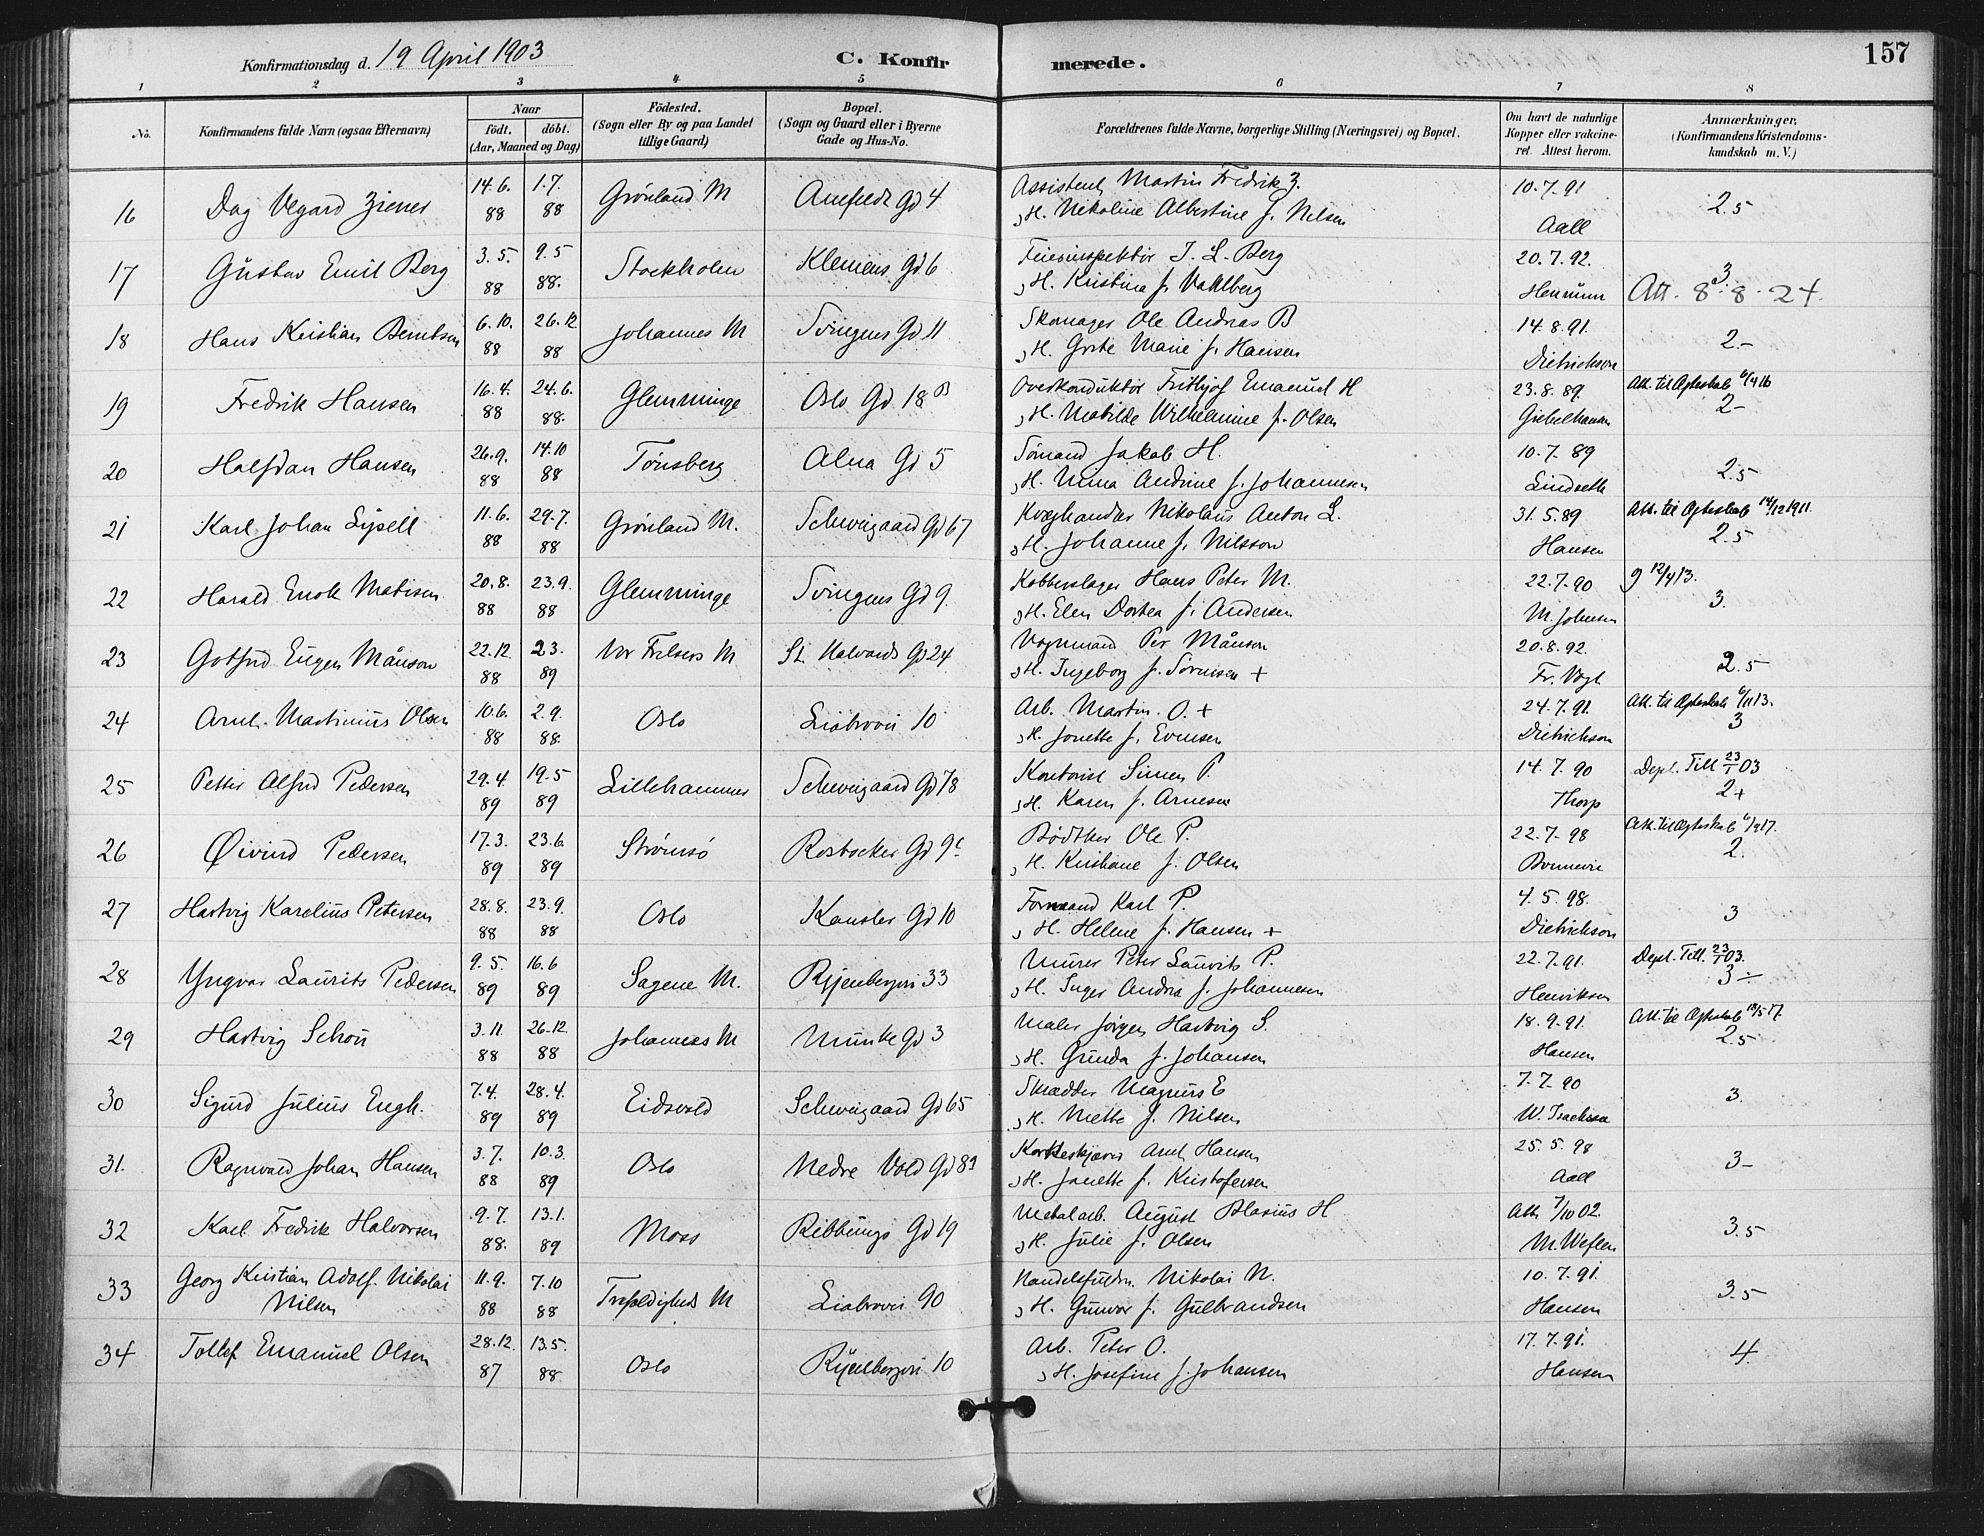 Konfirmationsdag d. 19 April 1903 C. Konfirmerede. 157
1 2 3 4 5 6 7 8
No. Konfirmandens fulde Navn (ogsaa Efternavn) Naar födt. döbt. (Aar, Maaned og Dag) Födested. (Sogn eller By og paa Landet tillige Gaard) Bopæl. (Sogn og Gaard eller i Byerne Gade og Hus-No. Forældrenes fulde Navne, borgerlige Stilling (Næringsvei) og Bopæl. Om havt de naturlige Kopper eller vakcineret. Attest herom. Anmærkninger, (Konfirmandens Kristendomskundskab m. V.)
16 Dag Vegard Ziener 14.6. 88 1.7. 88 Grönland M Gd 4 Assistent Martin Fredrik Z. 10.7.91 2.5
H. Nikoline Albertine f. Nilsen Aall
17 Gustav Emil Berg 3.5. 88 9.5 88. Stockholm Klemens Gd 6 J. L. Berg 20.7.92. 3
H. Kristina f. Vahlberg Att. 8.8.24.
18 Hans Kristian Berntsen 6.10. 88 26.12 88 Johannes M Svingens Gd 11 Skomager Ole Andreas B 14.8.91. 2.-
H. Grete Marie f. Hansen Dietrichson
19 Fredrik Hansen 16.4. 88 24.6. 88. Glemminge Oslo Gd 18 B Overkonduktör Fritjof Emanuel H 23.8.89. Att. til Ægteskab 6/4 16
H. Matilde Wilhelmine f. Olsen Giebelhausen 2-
20 Halfdan Hansen 26.9. 88 14.10 88 Tönsberg Alna Gd 5 Sömand Jakob H. 10.7 89 2.5
H. Anna Andrine f. Johannesen Lindseth
21 Karl Johan Lysell 11.6. 88 29.7. 88 Grönland M. Schweigaard Gd 67 Kvæghandler Nikolaus Anton L. 31.5.89 Att. til Ægteskab 14/12 1911.
H. Johanne f. Nilsson Hansen 2.5
22 Harald Enok Matisen 20.8. 88 23.9. 88 Glemminge Svingens Gd 9. Kobberslager Hans Peter M. 22.7.90 g 12/4 13.
H. Elen Dortea f. Andersen M. Johnsen 3.
23 Gotfred Eugen Månson 22.12. 88 23. 89 Vor Frelsers M St. Halvards Gd 24 Vognmand Per Månson 20.8.92.
H. Ingeborg f. Sörensen + Fr. Vogt 2.5
24 Arnt Martinius Olsen 10.6. 88 2.9. 88. Oslo Liabrovei 10 Arb. Martin O. + 24.7.91. Att. til Ægteskab 6/11 13.
H. Jonette f. Evensen Dietrichson 3
25 Petter Alfred Pedersen 29.4. 89 19.5 89 Lillehammer Schweigaard Gd 78 Kontorist Simen P. 14.7.90 Dept. Till 23/1 03
H. Karen f. Arnesen Thorp 2+
26 Øivind Pedersen 17.3. 89 23.6 89 Strömsö Rostocker Gd 9c Bödtker Ole P. 22.7.98 Att. til Ægteskab 6/9 17.
H. Kristiane f. Olsen Bonnevie 2.
27 Hartvig Karelius Petersen 28.8. 88 23.9. 88 Oslo Kansler Gd 10 Formand Karl P. 4.5.98. 3
H. Helene f. Hansen + Dietrichson
28 Yngvar Laurits Pedersen 9.5. 89 16.6 89 Sagene M. Ryenbergvei 33 Murer Peter Laurits P. 22.7.91. Dept. Till. 23/1 03.
H. Inger Andrea f. Johannesen Henriksen 3 ÷
29 Hartvig Schou 3.11. 88 26.12. 88 Johannes M Munke Gd 3 Maler Jörgen Hartvig S. 18.9.91. Att. til Ægteskab 18/5 17.
H. Gunda f. Johansen Hansen 2.5
30 Sigurd Julius Engh. 7.4. 89 28.4. 89 Eidsvold Schweigaard Gd 65 Skrædder Magnus E 7.7.90 3.
H. Mette f. Nilsen W. Isachsen
31. Ragnvald Johan Hansen 3.7. 88 10.3. 89 Oslo Nedre Vold Gd 89 Korkeskjærer Arnt Hansen 25.5.98 3-
H. Janette f. Kristofersen Aall
32 Karl Fredrik Halvorsen 9.7. 88. 13.1. 89 Moss Ribbungs Gd 19 Metalarb. August Blasius H Att. 7/10 02. 3.5
H. Julie f. Olsen M. Weflen
33 Georg Kristian Adolf Nikolai Nilsen 11.9. 88 7.10 88 Trefoldigheds M Liabrovei 90 Handelsfuldm. Nikolai N. 10.7.91. 3.5
H. Gunvor f. Gulbrandsen Hansen
34 Tollef Emanuel Olsen 28.12. 87 13.5. 88 Oslo Ryenbergvei 10 Arb. Peter O. 17.7.91. 4.
H. Josefine f. Johansen Hansen